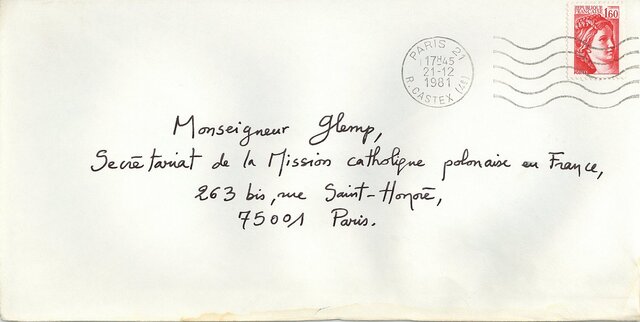 REPUBLIQUE FRANÇAISE 1,60
PARIS 21
17H45
21-12
1981
R. CASTEX (4E)
Monseigneur Glemp,
Secrétariat de la Mission catholique polonaise en France,
263 bis, rue Saint-Honoré,
75001 Paris.